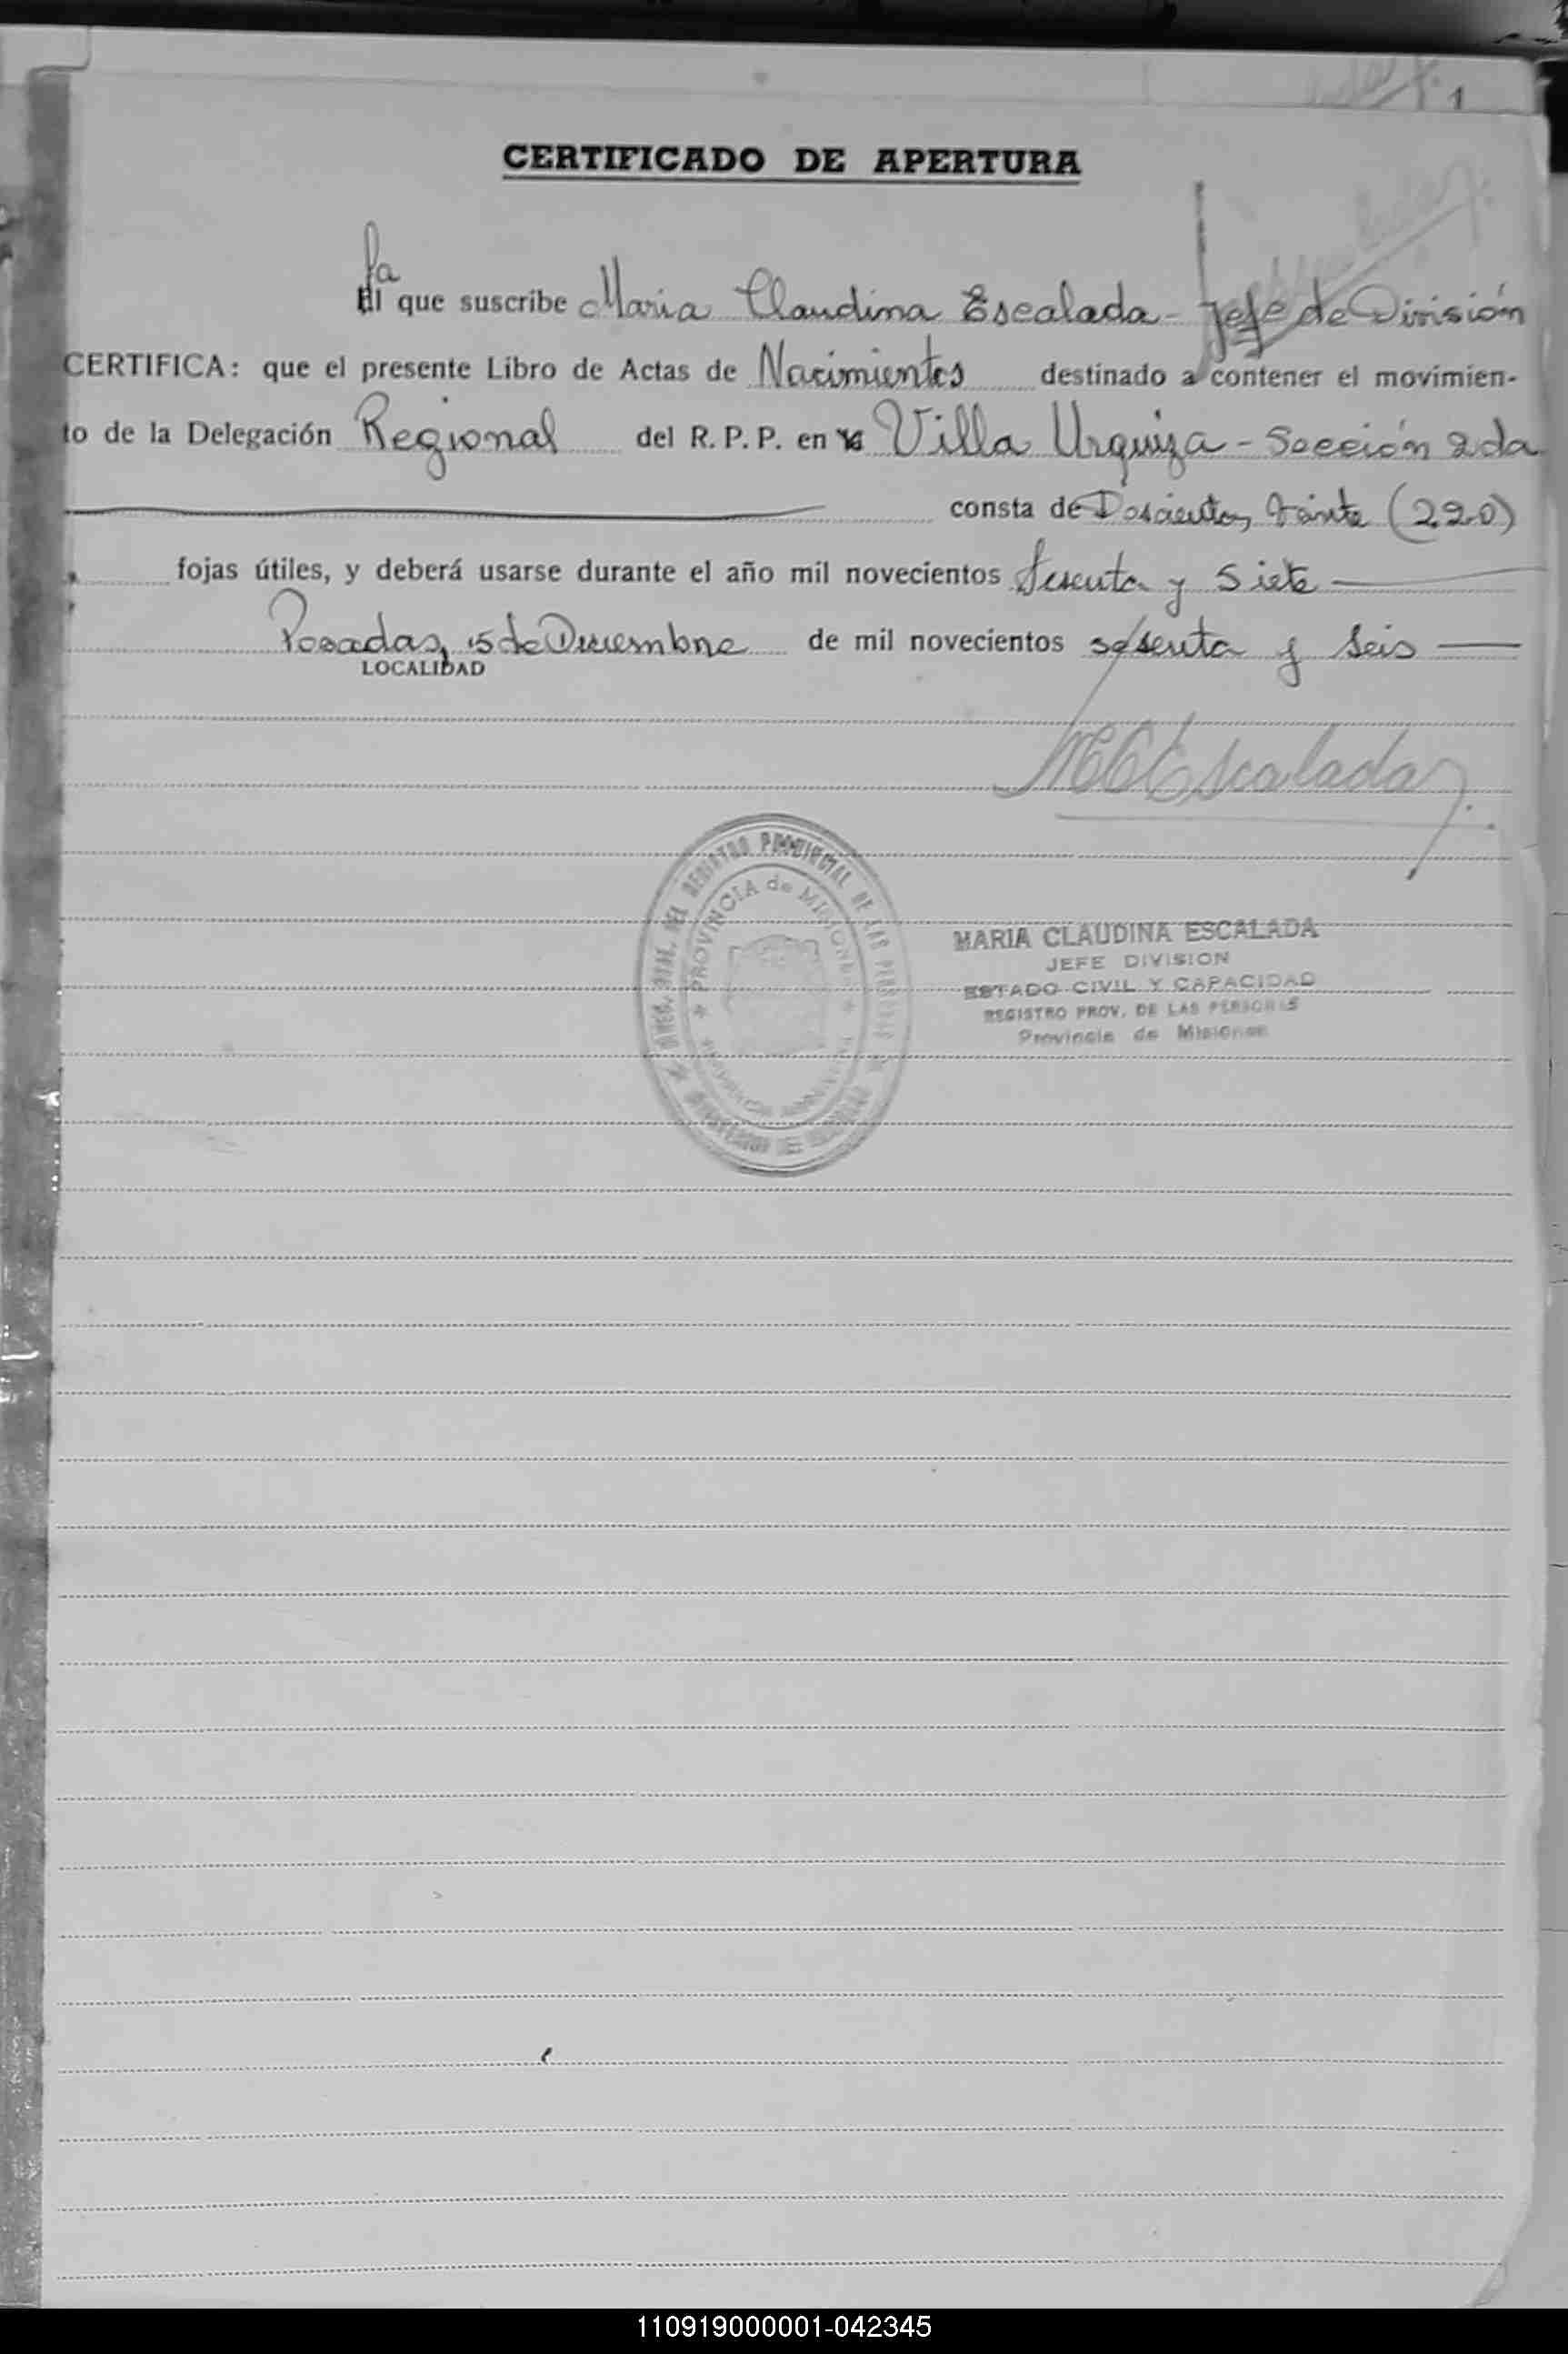 1
CERTIFICADO DE APERTURA
La
El que suscribe Maria Claudina Escalada - Jefe de División
CERTIFICA: que el presente Libro de Actas de Nacimientos destinado a contener el movimien-
to de la Delegación Regional del R. P. P. en Villa Urquiza - Sección 2da
consta de Doscientos Veinte (220)
fojas útiles, y deberá usarse durante el año mil novecientos Sesenta y Siete
Posadas, 15 de Diciembre de mil novecientos sesenta y seis
LOCALIDAD
MCEscalada
DEL REGISTRO PROVINCIAL DE LAS PERSONAS
PROVINCIA de MISIONES
MARIA CLAUDINA ESCALADA
JEFE DIVISION
ESTADO CIVIL Y CAPACIDAD
REGISTRO PROV. DE LAS PERSONAS
Provincia de Misiones
110919000001-042345